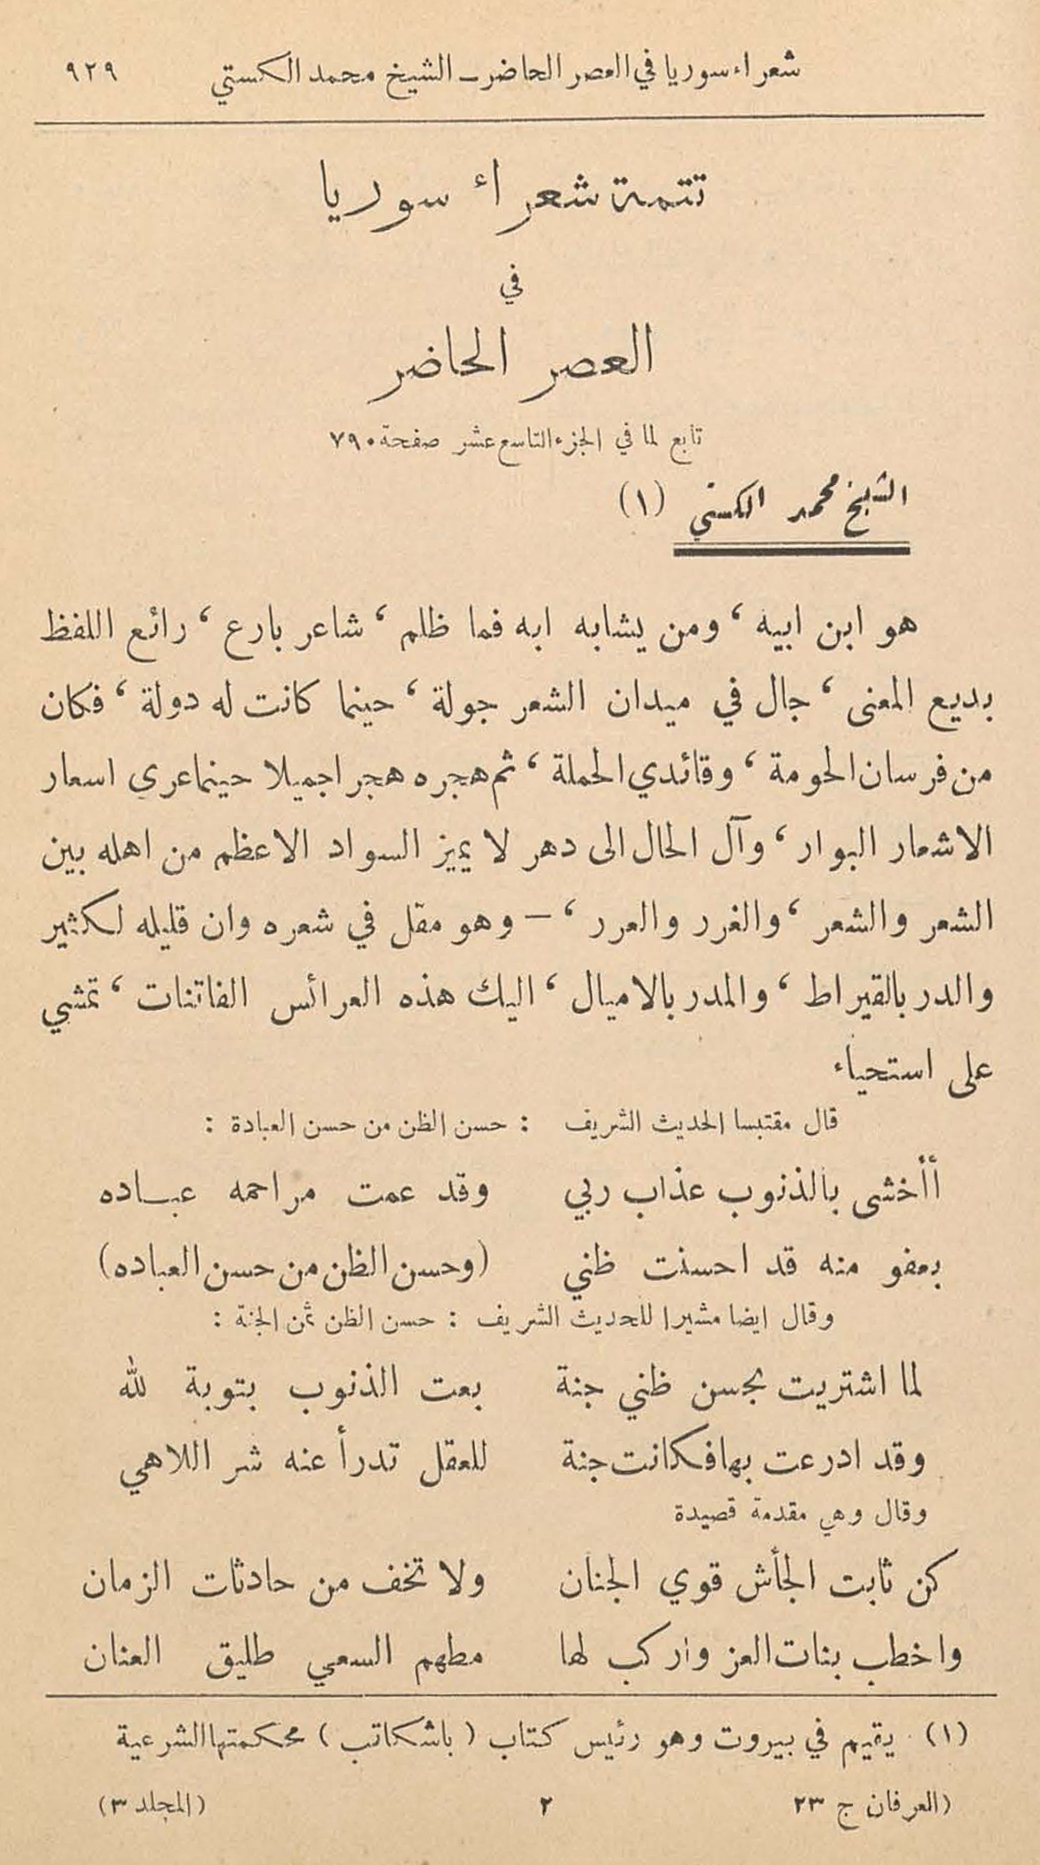 شعراء سوريا في العصر الحاضر – الشيخ محمد الكستي ٩٢٩
تتمة شعراء سوريا
في
العصر الحاضر
تابع لما في الجزء التاسع عشر صفحة ٧٩٠
الشيخ محمد الكستي (١)
هو ابن ابيه ، ومن يشابه ابه فما ظلم ، شاعر بارع ، رائع اللفظ
بديع المعنى ، جال في ميدان الشعر جولة ، حينما كانت له دولة ، فكان
من فرسان الحومة ، وقائدي الحملة ، ثم هجره هجرا جميلا حينما عري اسعار
الاشعار البوار ، وآل الحال الى دهر لا يميز السواد الاعظم من اهله بين
الشعر والشعر ، والغرر والعرر ، – وهو مقل في شعره وان قليله لكثير
والدر بالقيراط ، والمدر بالاميال ، اليك هذه العرائس الفاتنات ، تمشي
على استحياء
قال مقتبسا الحديث الشريف : حسن الظن من حسن العبادة :
أأخشى بالذنوب عذاب ربي وقد عمت مراحمه عباده
بعفو منه قد احسنت ظني (وحسن الظن من حسن العباده)
وقال ايضا مشيرا للحديث الشريف : حسن الظن ثمن الجنة :
لما اشتريت بحسن ظني جنة بعت الذنوب بتوبة لله
وقد ادرعت بها فكانت جنة للعقل تدرأ عنه شر اللاهي
وقال وهي مقدمة قصيدة
كن ثابت الجأش قوي الجنان ولا تخف من حادثات الزمان
واخطب بنات العز واركب لها مطهم السعي طليق العنان
(١) يقيم في بيروت وهو رئيس كتاب ( باشكاتب ) محكمتها الشرعية
(العرفان ج ٢٣ ٢ (المجلد ٣)